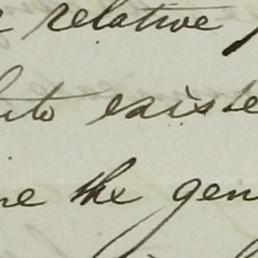 relative
into existe
the gen